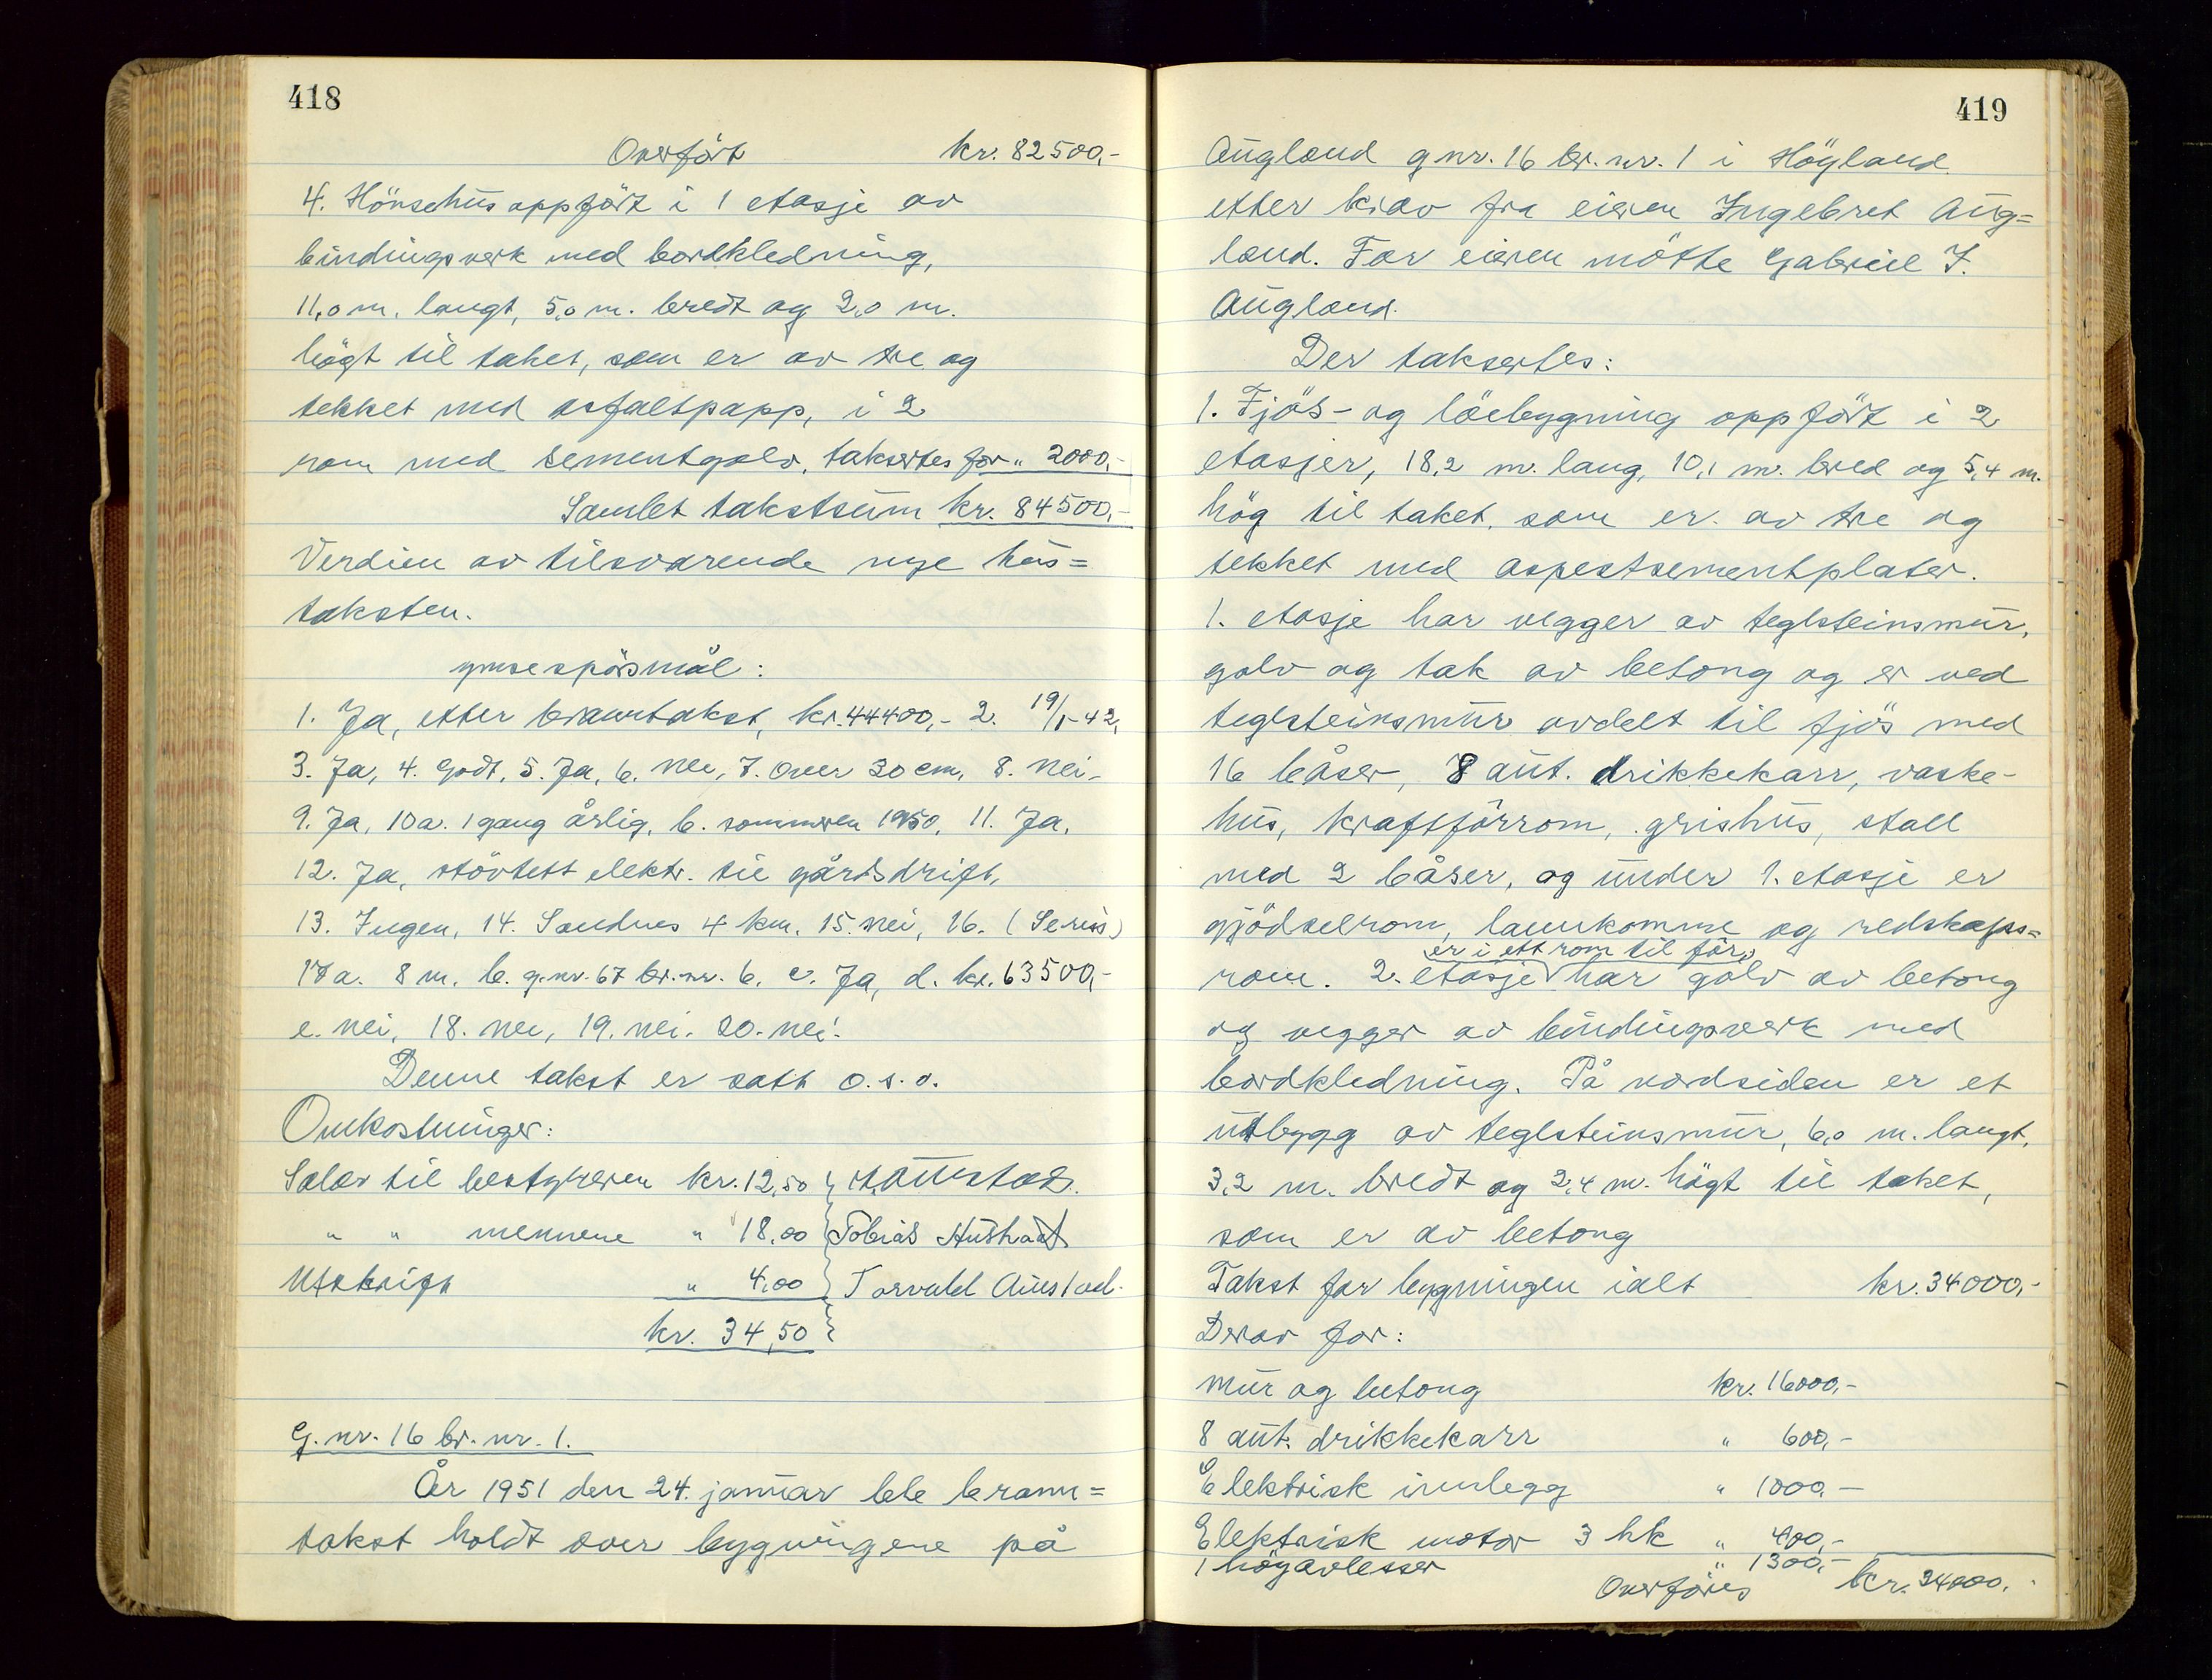 418
Overført kr. 82500,-
4. Hönsehus oppfört i 1 etasje av
bindingsverk med bordkledning,
11,0 m. langt, 5,0 m. bredt og 2,0 m.
högt til taket, som er av tre og
tekket med asfaltpapp, i 2
rom med sementgolv, taksertes for „ 2000,-
Samlet takstsum kr. 84500,-
Verdien av tilsvarende nye hus=
taksten.
ymse spörsmål:
1. Ja, etter branntakst, kr. 44400,- 2. 19/1-42,
3. Ja, 4. Godt, 5. Ja, 6. Nei, 7. Over 30 cm, 8. Nei-
9. Ja, 10a. 1 gang årlig, b. sommeren 1950, 11. Ja,
12. Ja, stövtett elektr. til gårdsdrift,
13. Ingen, 14. Sandnes 4 km, 15. Nei, 16. (Se riss)
17a. 8 m. b. g.nr. 67 br.nr. 6. c. Ja, d. kr. 63500,-
e. nei, 18. nei, 19. nei. 20. nei.
Denne takst er satt o.s.v.
Omkostninger:
Salær til bestyreren kr. 12,50 } Austad.
„ „ mennene „ 18,00 } Tobias Hustad
Utskrift „ 4,00 } Torvald Austad.
kr. 34,50 }
G. nr. 16 br. nr. 1.
År 1951 den 24. januar ble brann=
takst holdt over bygningene på
419
Augland g nr. 16 br. nr. 1 i Höyland
etter krav fra eieren Ingebret Aug=
land. For eieren mötte Gabriel I.
Augland.
Der taksertes:
1. Fjös- og löebygning oppfört i 2
etasjer, 18,2 m. lang, 10,1 m. bred og 5,4 m.
hög til taket, som er av tre og
tekket med aspestsementplater.
1. etasje har vegger av teglsteinsmur,
golv og tak av betong og er ved
teglsteinsmur avdelt til fjös med
16 båser, 8 aut. drikkekarr, vaske-
hus, kraftfôrrom, grishus, stall
med 2 båser, og under 1. etasje er
gjödselrom, lannkomme og redskaps=
er i ett rom til fôr,
rom. 2. etasje har golv av betong
og vegger av bindingsverk med
bordkledning. På nordsiden er et
utbygg av teglsteinsmur, 6,0 m. langt,
3,2 m. bredt og 2,4 m. högt til taket,
som er av betong
Takst for bygningen ialt kr. 34000,-
Derav for:
Mur og betong kr. 16000,-
8 aut. drikkekarr „ 600,-
Elektrisk innlegg „ 1000,-
Elektrisk motor 3 hk „ 400,-
1 höyavlesser „ 1300,-
Overføres kr. 34000.